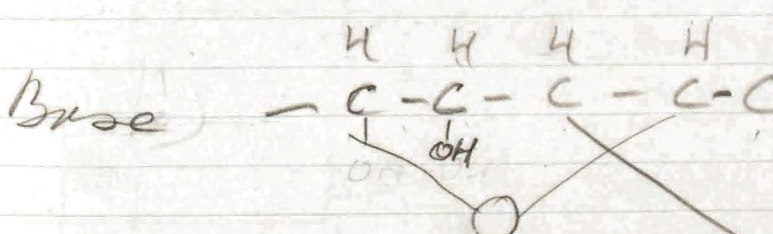 H H H H
Base - C - C - C - C - C
OH
O